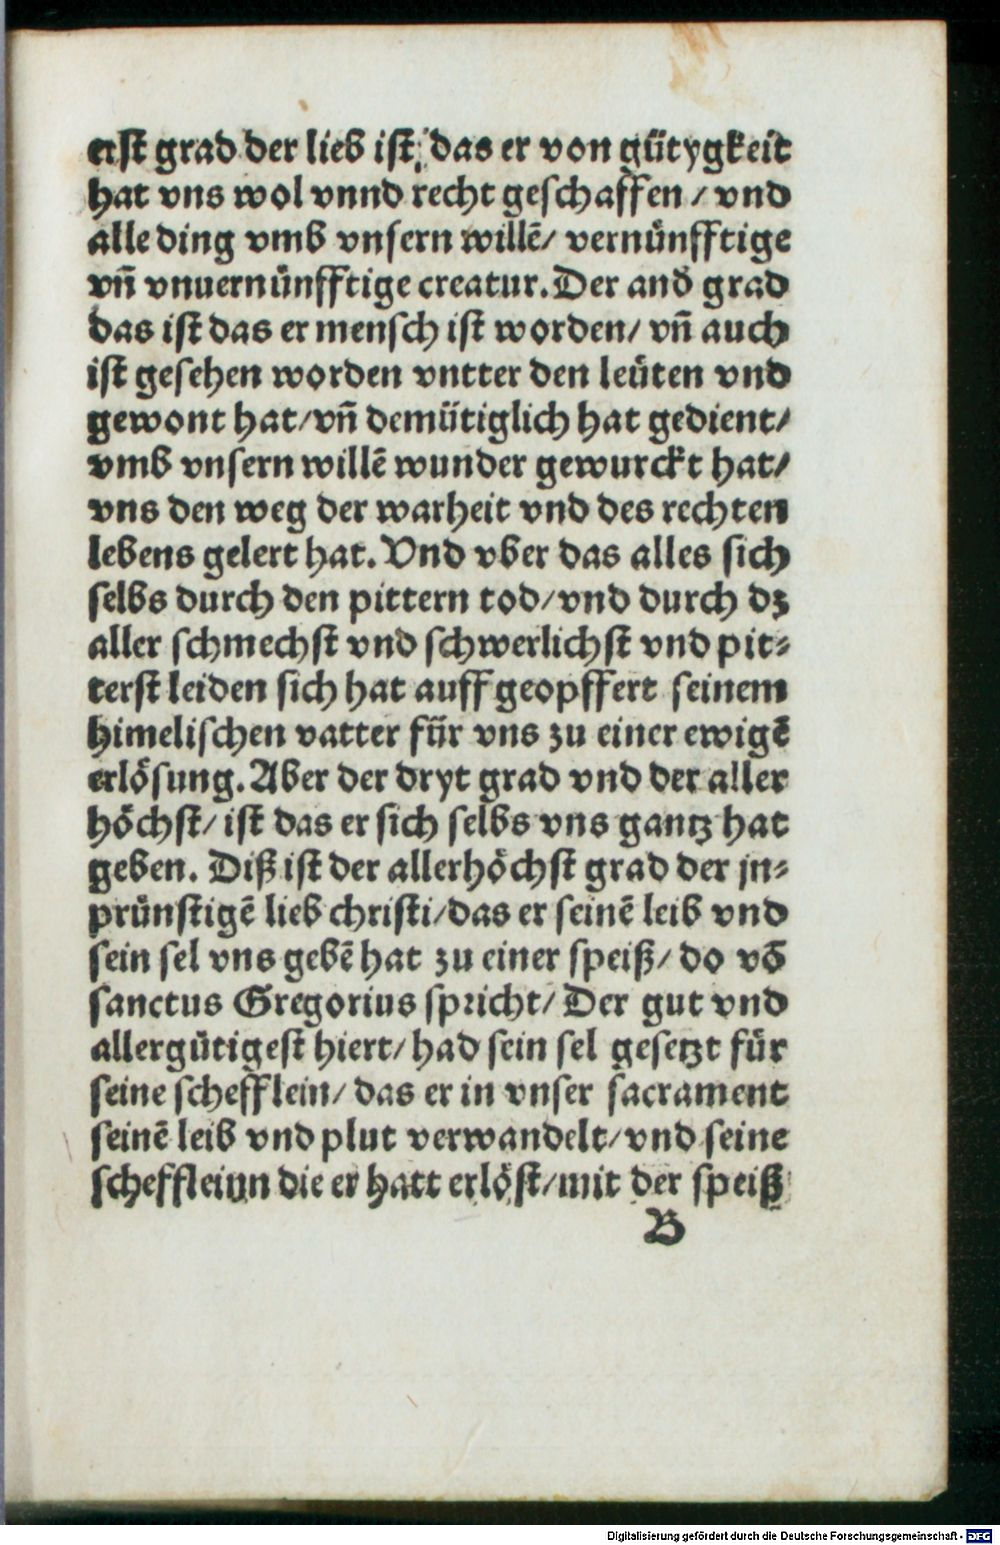 erst grad der lieb ist, das er von gütygkeit
hat vns wol vnnd recht geschaffen / vnd
alle ding vmb vnsern willē/ vernünfftige
vn̄ vnuernünfftige creatur. Der and̄ grad
das ist das er mensch ist worden/ vn̄ auch
ist gesehen worden vntter den leüten vnd
gewont hat/vn̄ demütiglich hat gedient/
vmb vnsern willē wunder gewurckt hat/
vns den weg der warheit vnd des rechten
lebens gelert hat. Vnd vber das alles sich
selbs durch den pittern tod/vnd durch dz
aller schmechst vnd schwerlichst vnd pit⸗
terst leiden sich hat auff geopffert seinem
himelischen vatter für vns zu einer ewigē
erlösung. Aber der dryt grad vnd der aller
höchst/ ist das er sich selbs vns gantz hat
geben. Diß ist der allerhöchst grad der jn⸗
prünstigē lieb christi/das er seinē leib vnd
sein sel vns gebē hat zu einer speiß/ do vō
sanctus Gregorius spricht/ Der gut vnd
allergütigest hiert/ had sein sel gesetzt für
seine schefflein/ das er in vnser sacrament
seinē leib vnd plut verwandelt/vnd seine
scheffleinn die er hatt erlöst/mit der speiß
B
Digitalisierung gefördert durch die Deutsche Forschungsgemeinschaft - DFG